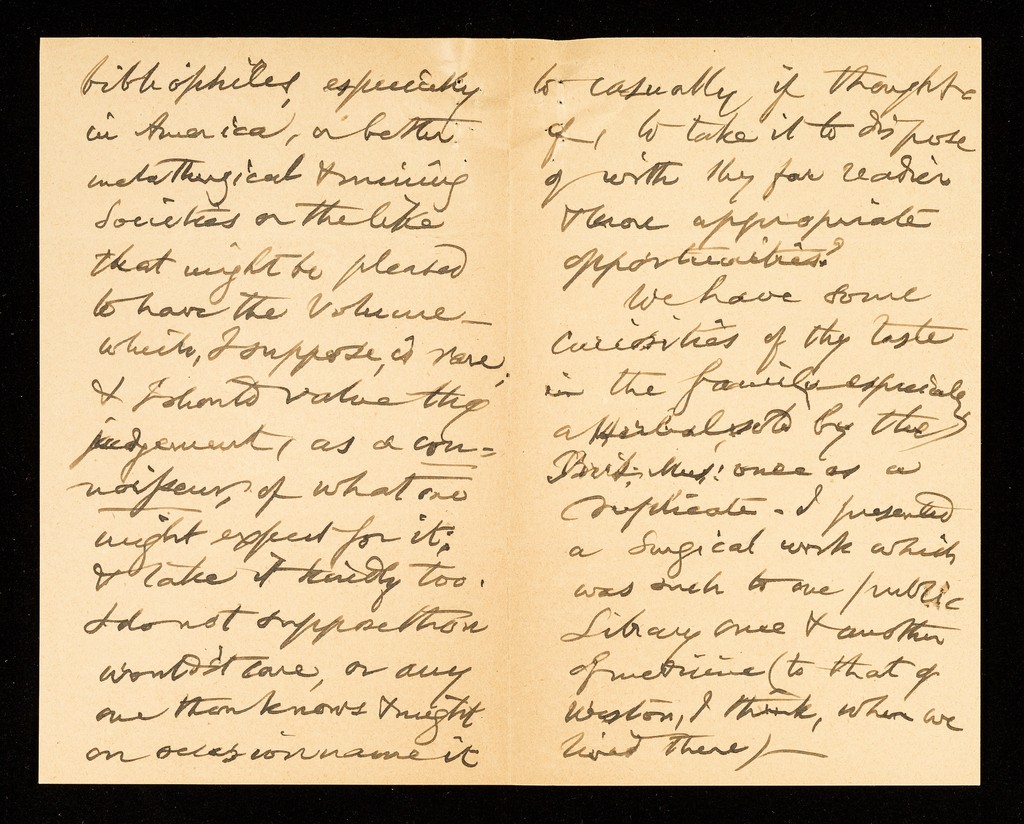 bibliophiles, especially
in America, or better
metallurgical & mining
Societies or the like
that might be pleased
to have the Volume —
which, I suppose, is rare;
& I should value thy
judgement, as a con=
noisseur, of what one
might expect for it;
& take it kindly too.
I do not suppose thou
would'st care, or any
one thou knows & might
on occasion name it
to casually if thought
of, to take it to dispose
of with thy far readier
& more appropriate
opportunities?
We have some
curiosities of thy taste
in the family especially
a Herbal, sold by the
Brit. Mus: once as a
duplicate - I presented
a Surgical work which
was such to one public
Library once & another
of medicine (to that of
Weston, I think, when we
lived there) —